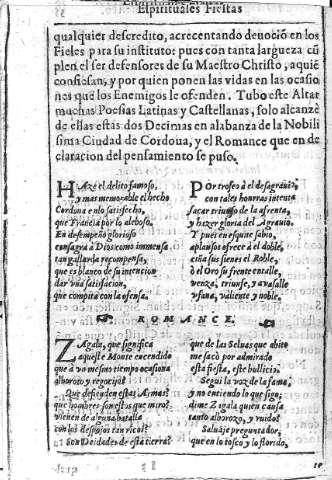 Espirituales Fiestas
qualquier descredito, acrecentando devociō en los
Fieles para su instituto: pues con tanta largueza cū
plen el ser defensores de su Maestro Christo, a quiē
confiesan, y por quien ponen las vidas en las ocasio
nes que los Enemigos le ofenden. Tubo este Altar
muchas Poesias Latinas y Castellanas, solo alcanzè
de ellas estas dos Decimas en alabanza de la Nobili
sima Ciudad de Cordoua, y el Romance que en de
claracion del pensamiento se puso.
HAzè el delito famoso,
y mas memorable el hecho
Cordoua en lo satisfecho,
que Francia por lo aleboso.
En desempeño glorioso
consagra à Dios como immensa
tan gallarda recompensa,
que es blanco de su intencion
dar vna satisfacion,
que compita con la ofensa.
POr trofeo à el desagrauio,
con tales honrras intenta
sacar triumfo de la afrenta,
y hazer gloria del Agrauio.
Y pues en
aplausos ofrece à el doble,
ciña sus sienes el Roble,
ò el Oro su frente entalle,
venza, triunfe, y avasalle
vfana, valiente y noble.
ROMANCE.
ZAgala, que significa
aqueste Monte encendido
que à vn mesmo tiempo ocasiona
alboroto y regocijo?
Que defienden estas Armas?
que hombres son estos que miro?
vienen de alguna batalla
con los despojos tan ricos?
Son Deidades de esta tierra?
que de las Seluas que abito
me sacò por admirado
esta fiesta, este bullicio.
Segui la voz de la fama,
y no entiendo lo que sigo;
dime Zagala quien causa
tanto alboroto, y ruido?
Saluaje preguntador,
que en lo tosco y lo florido,